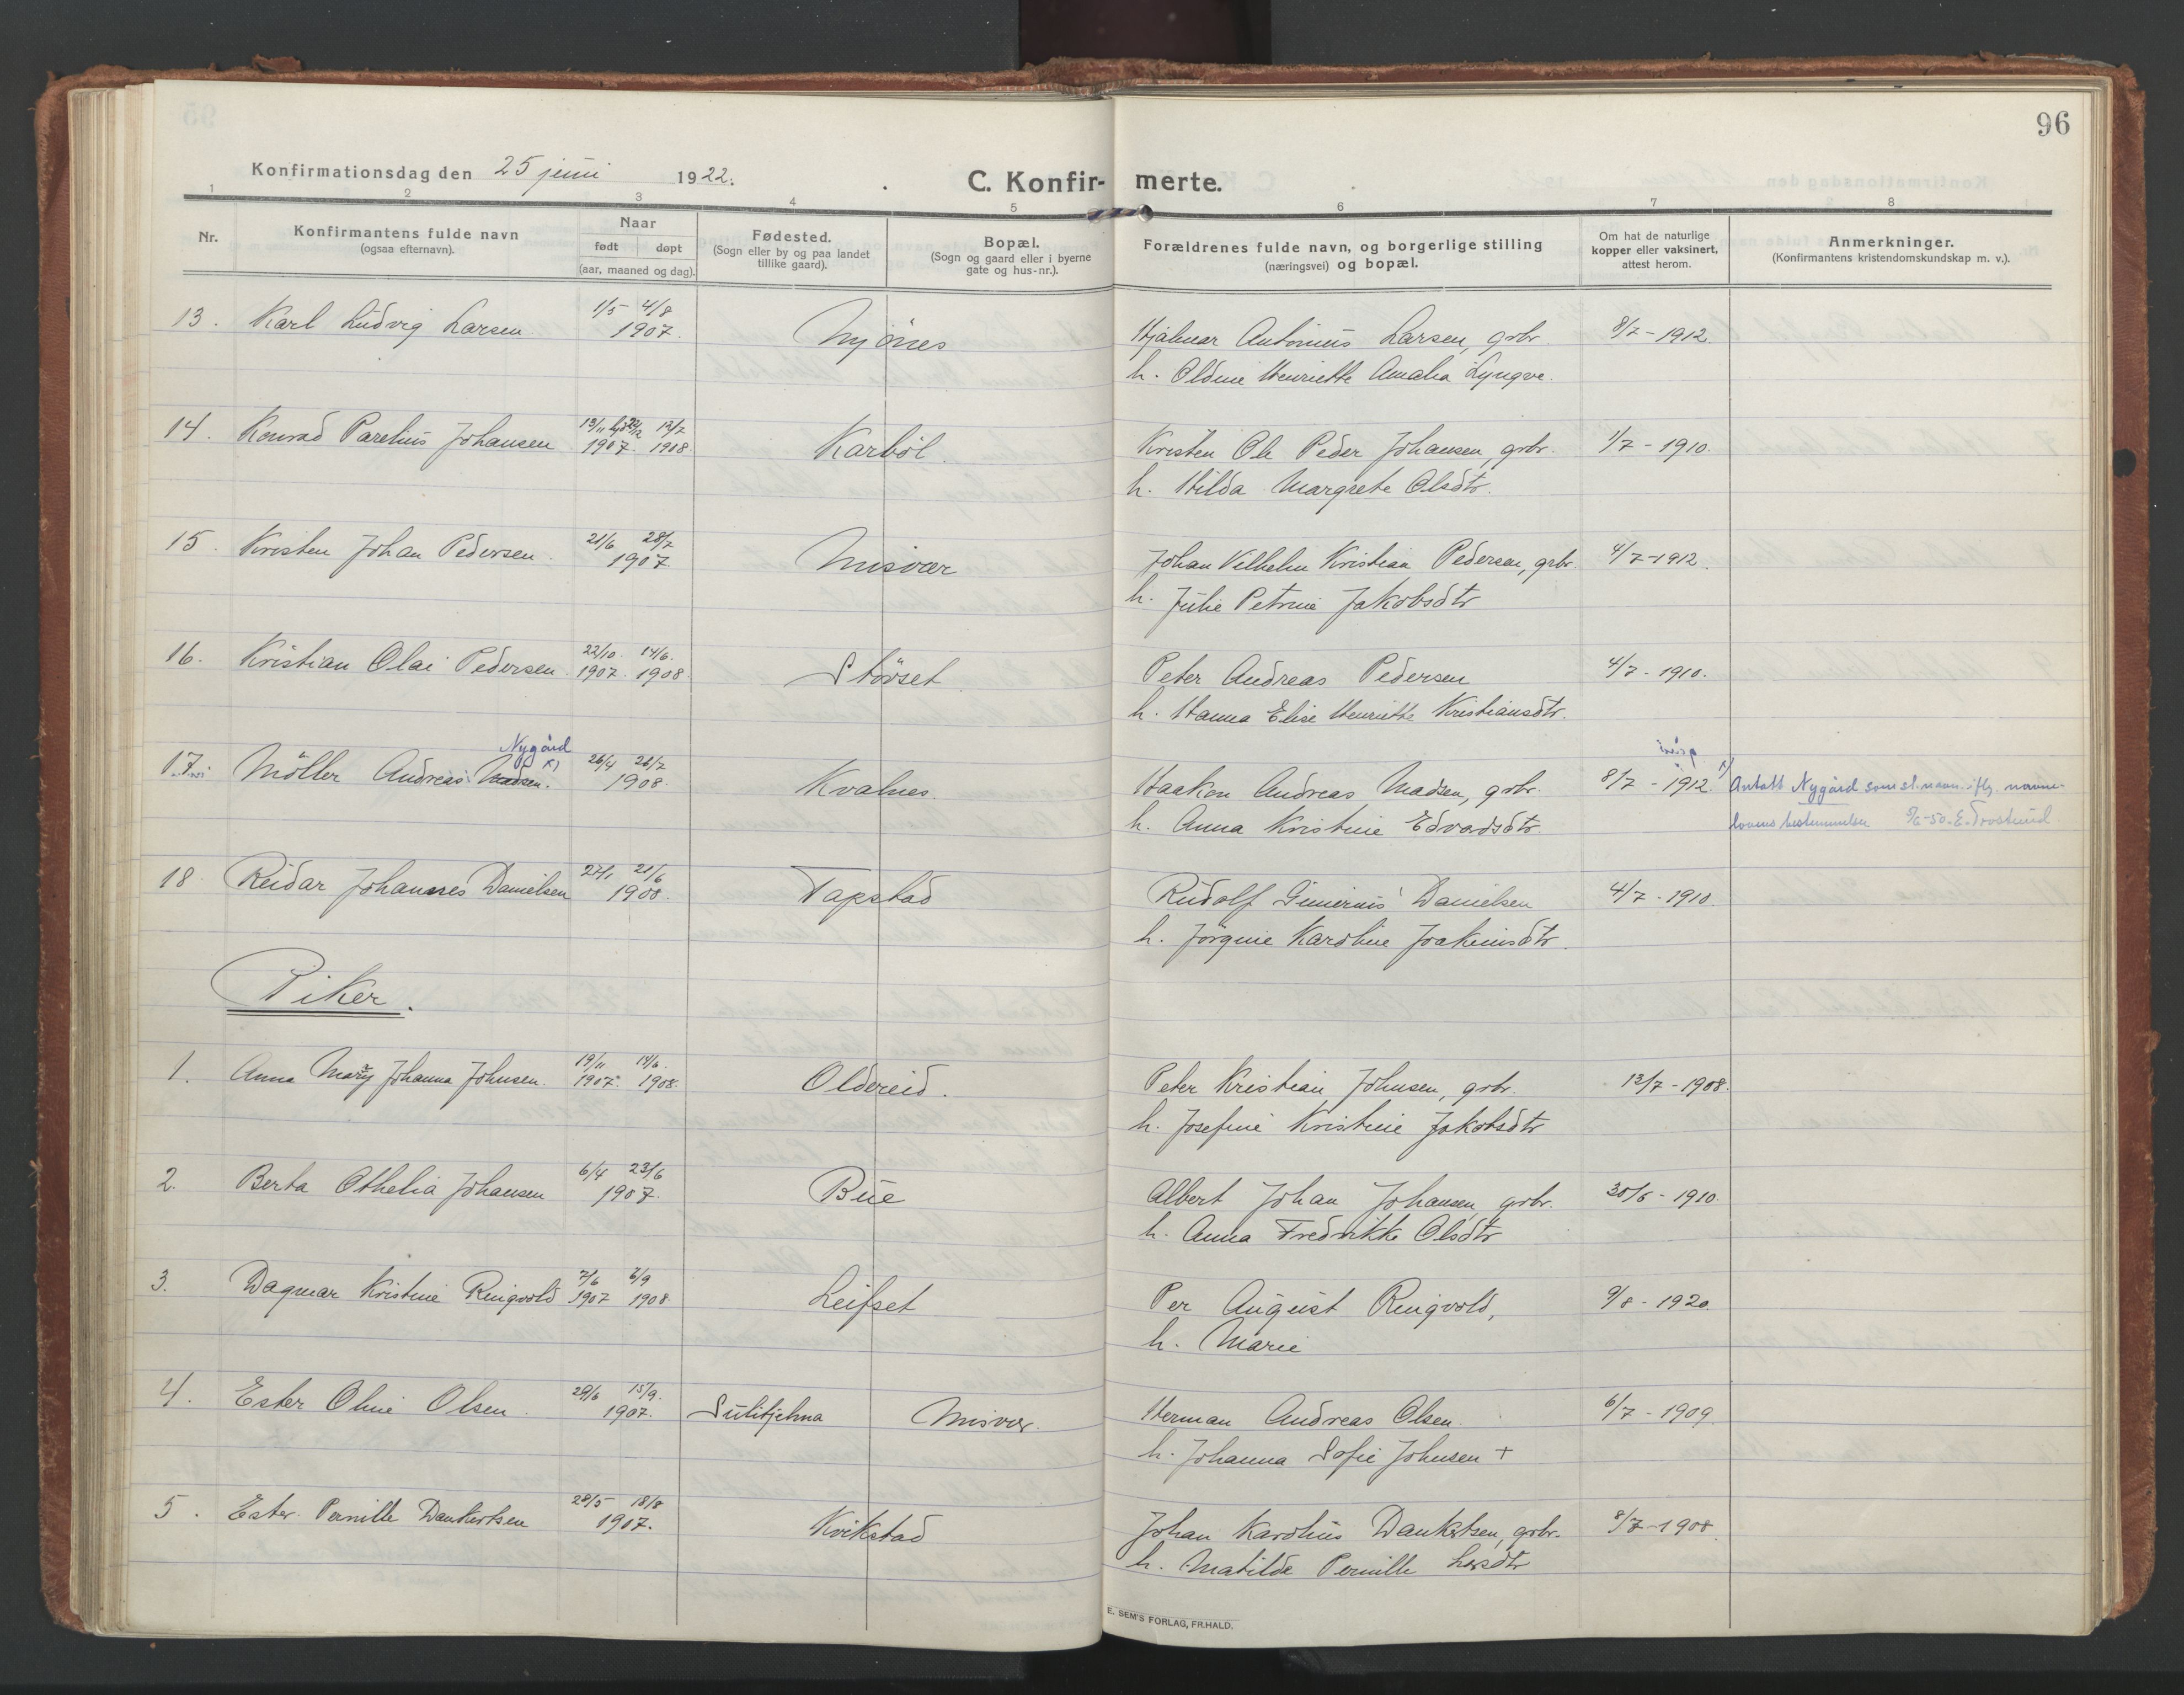 96
Konfirmationsdag den 25 juni 1922.
C. Konfir- merte.
1 2 3 4 5 6 7 8
Nr.
Konfirmantens fulde navn
(ogsaa efternavn).
Naar
født døpt
(aar, maaned og dag).
Fødested.
(Sogn eller by og paa landet
tillike gaard).
Bopæl.
(Sogn og gaard eller i byerne
gate og hus-nr.).
Forældrenes fulde navn, og borgerlige stilling
(næringsvei) og bopæl.
Om hat de naturlige
kopper eller vaksinert,
attest herom.
Anmerkninger.
(Konfirmantens kristendomskundskap m. v.).
13. Karl Ludvig Larsen 1/5 4/8 1907. Njönes Hjalmar Antonius Larsen, grbr. 8/7 - 1912.
h. Oldine Henriette Amalia Lyngve.
14. Konrad Parelius Johansen 13/11 hjd 29/12 1907. 12/7 1908. Karböl. Kristen Ole Peder Johansen, grbr. 1/7 - 1910.
h. Hilda Margrete Olsdtr.
15. Kristen Johan Pedersen. 21/6 28/7 1907. Misvær Johan Vilhelm Kristian Pedersen, grbr. 4/7-1912.
h. Julie Petrine Jakobsdtr
16. Kristian Olai Pedersen. 22/10 1907. 14/6. 1908. Störset Peter Andreas Pedersen 4/7 - 1910.
h. Hanna Elise Henriette Kristiansdtr.
Nygård
17. Möller Andreas Madsen. x) 26/4 26/7 1908. Kvalnes. Haakon Andreas Madsen, grbr. 8/7 - 1912. x) Antatt Nygård som sl.navn iflg. navne-
h. Anna Kristine Edvardsdtr. lovens bestemmelser
18. Reidar Johannes Danielsen 27/1 21/6 1908. Tapstad Rudolf Danielsen 4/7 - 1910.
h. Jörgine Karoline Joakimsdtr.
Piker.
1. Anna Mary Johanna Johnsen. 19/11 1907. 14/6. 1908. Oldereid. Peter Kristian Johnsen, grbr. 13/7 - 1908.
h. Josefine Kristine Jakobsdtr
2. Berta Othelia Johansen 6/4 23/6 1907. Bue Albert Johan Johansen, grbr. 30/6 - 1910.
h. Anna Fredrikke Olsdtr
3. Dagmar Kristine Ringvold 7/6 1907 6/9 1908. Leifset Per August Ringvold, 9/8 - 1920.
h. Marie
4. Ester Oline Olsen. 29/6 15/9. 1907. Sulitjelma Misvær. Herman Andreas Olsen. 6/7 - 1909.
h. Johanna Sofie Johnsen +
5. Ester Pernille Dankertsen 28/5 18/8 1907. Kvikstad Johan Karolius Dankertsen, grbr. 8/7-1908.
h. Matilde Pernille Larsdtr
E. SEM'S FORLAG, FR.HALD.